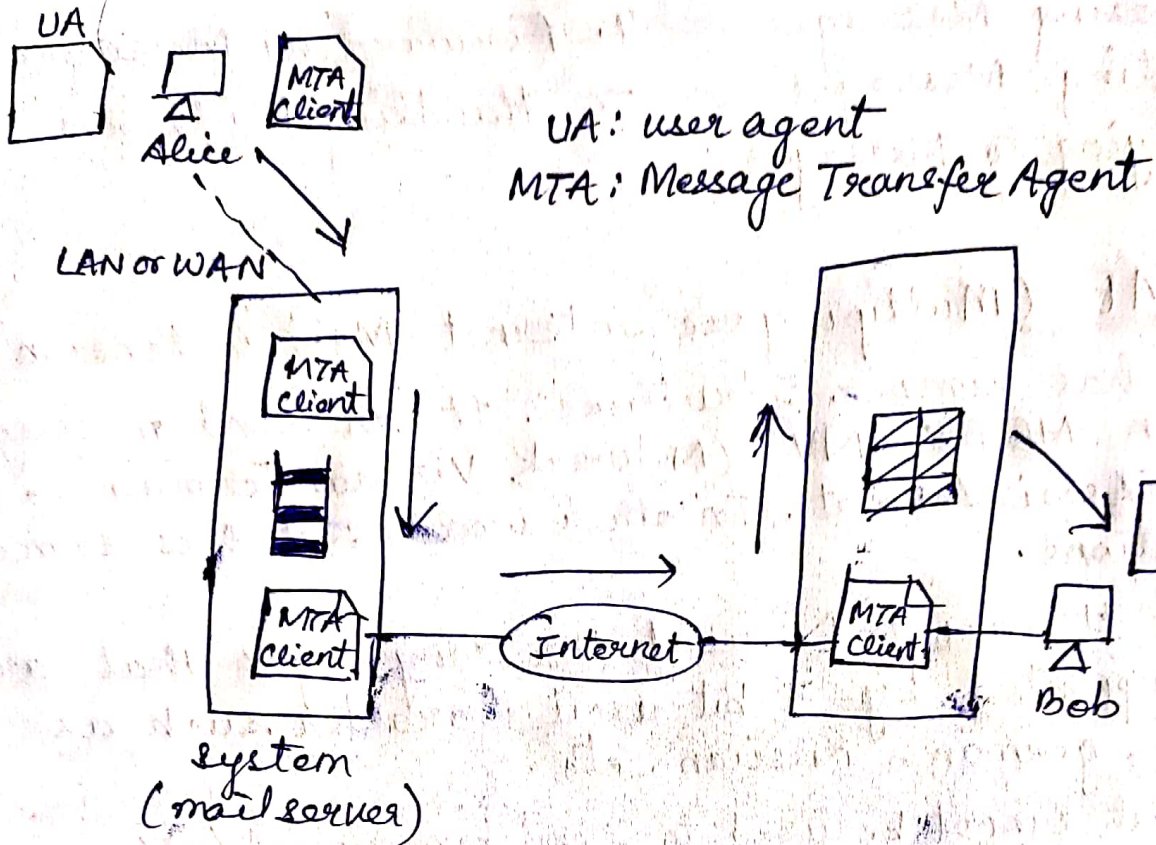 UA
MTA
Client
Alice
UA: user agent
MTA: Message Transfer Agent
LAN or WAN
MTA
Client
MTA
Client
Internet
MTA
Client
Bob
system
(mail server)